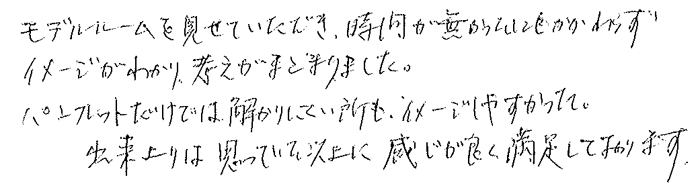 モデルルームを見せていただき、時間が無かったにもかかわらず
イメージがわかり、考えがまとまりました。
パンフレットだけでは解かりにくい所も、イメージしやすかった。
出来上りは思っていた以上に感じが良く、満足しております。